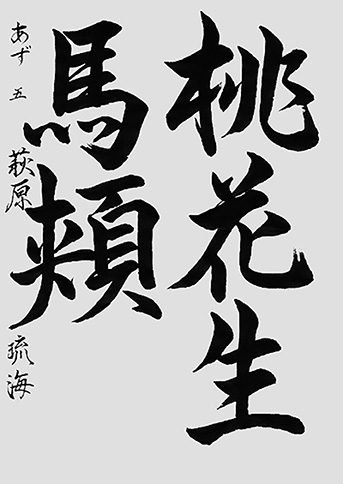 桃花生
馬頬
あず 五 萩原 琉海